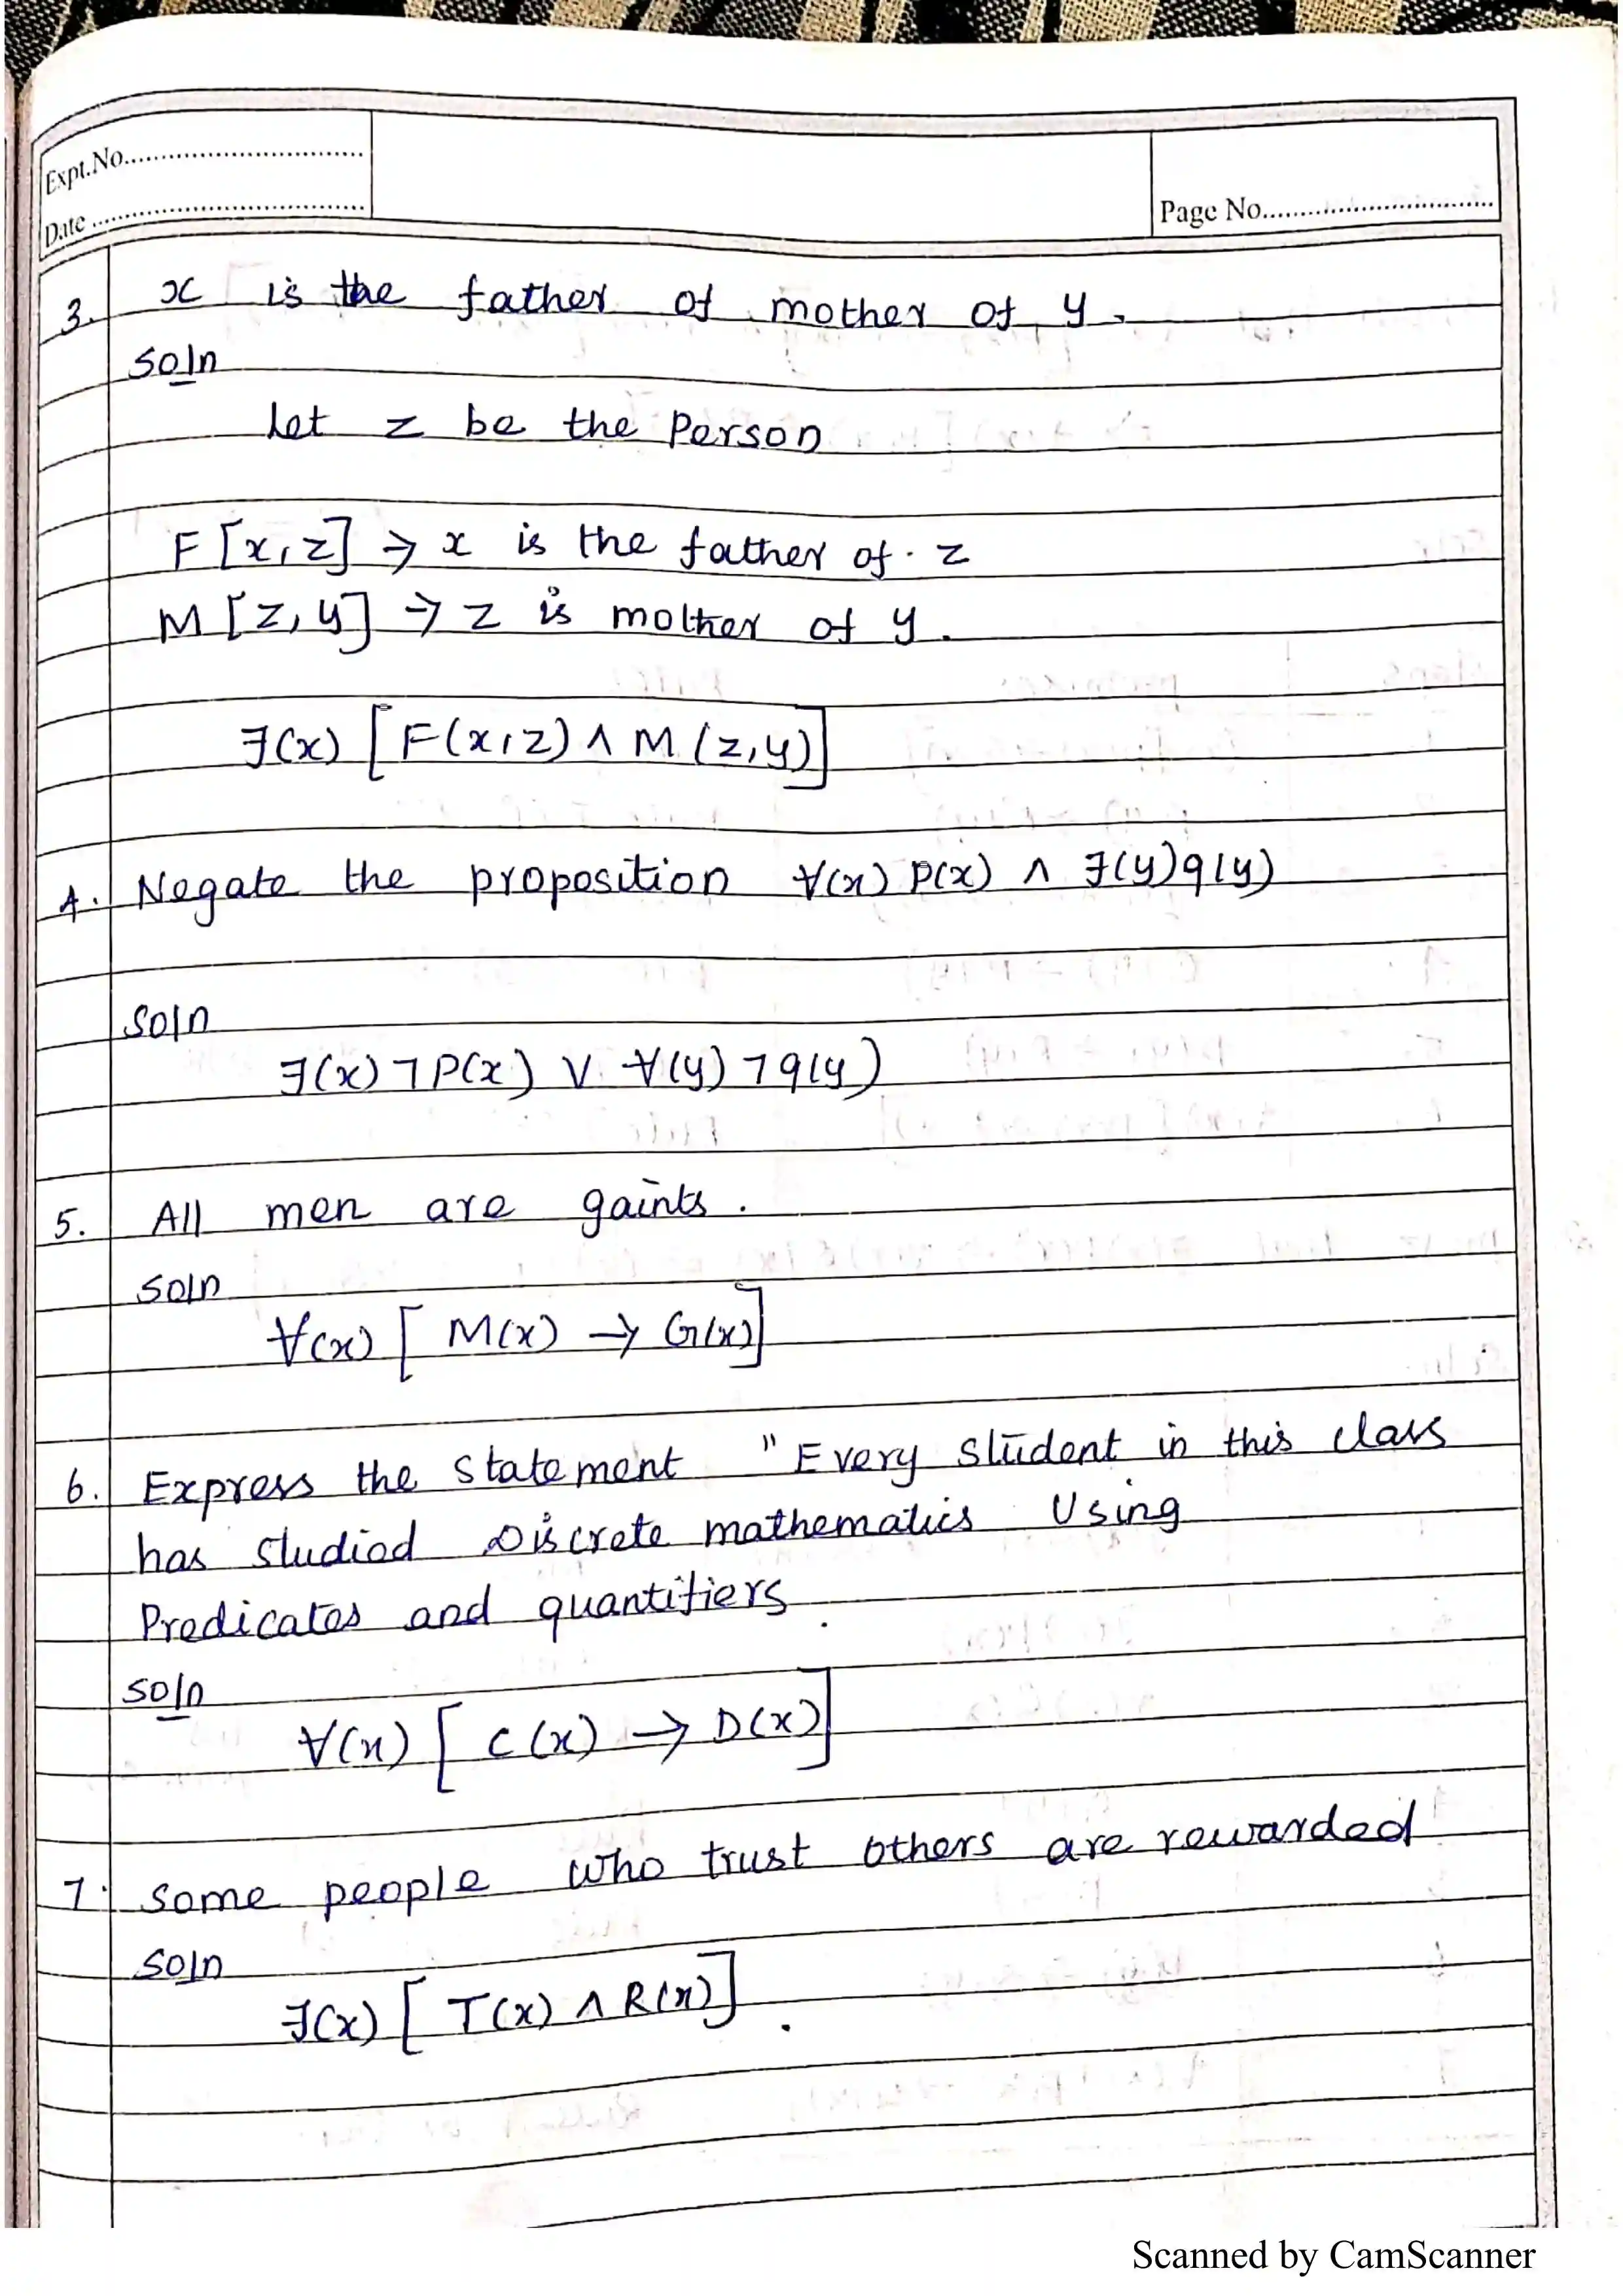 Expt.No..............................
Date ......................................
Page No................................
3. x is the father of mother of y.
Soln
Let z be the Person
F [x, z] → x is the father of z
M [z, y] → z is mother of y.
∃(x) [F(x, z) ∧ M (z, y)]
4. Negate the proposition ∀(x) P(x) ∧ ∃(y) q(y)
Soln
∃(x) ¬P(x) ∨ ∀(y) ¬q(y)
5. All men are gaints.
Soln
∀(x) [ M(x) → G(x)]
6. Express the statement " Every student in this class
has studied Discrete mathematics Using
Predicates and quantifiers.
Soln
∀(x) [ C(x) → D(x)]
7. Some people who trust others are rewarded
Soln
∃(x) [ T(x) ∧ R(x)].
Scanned by CamScanner